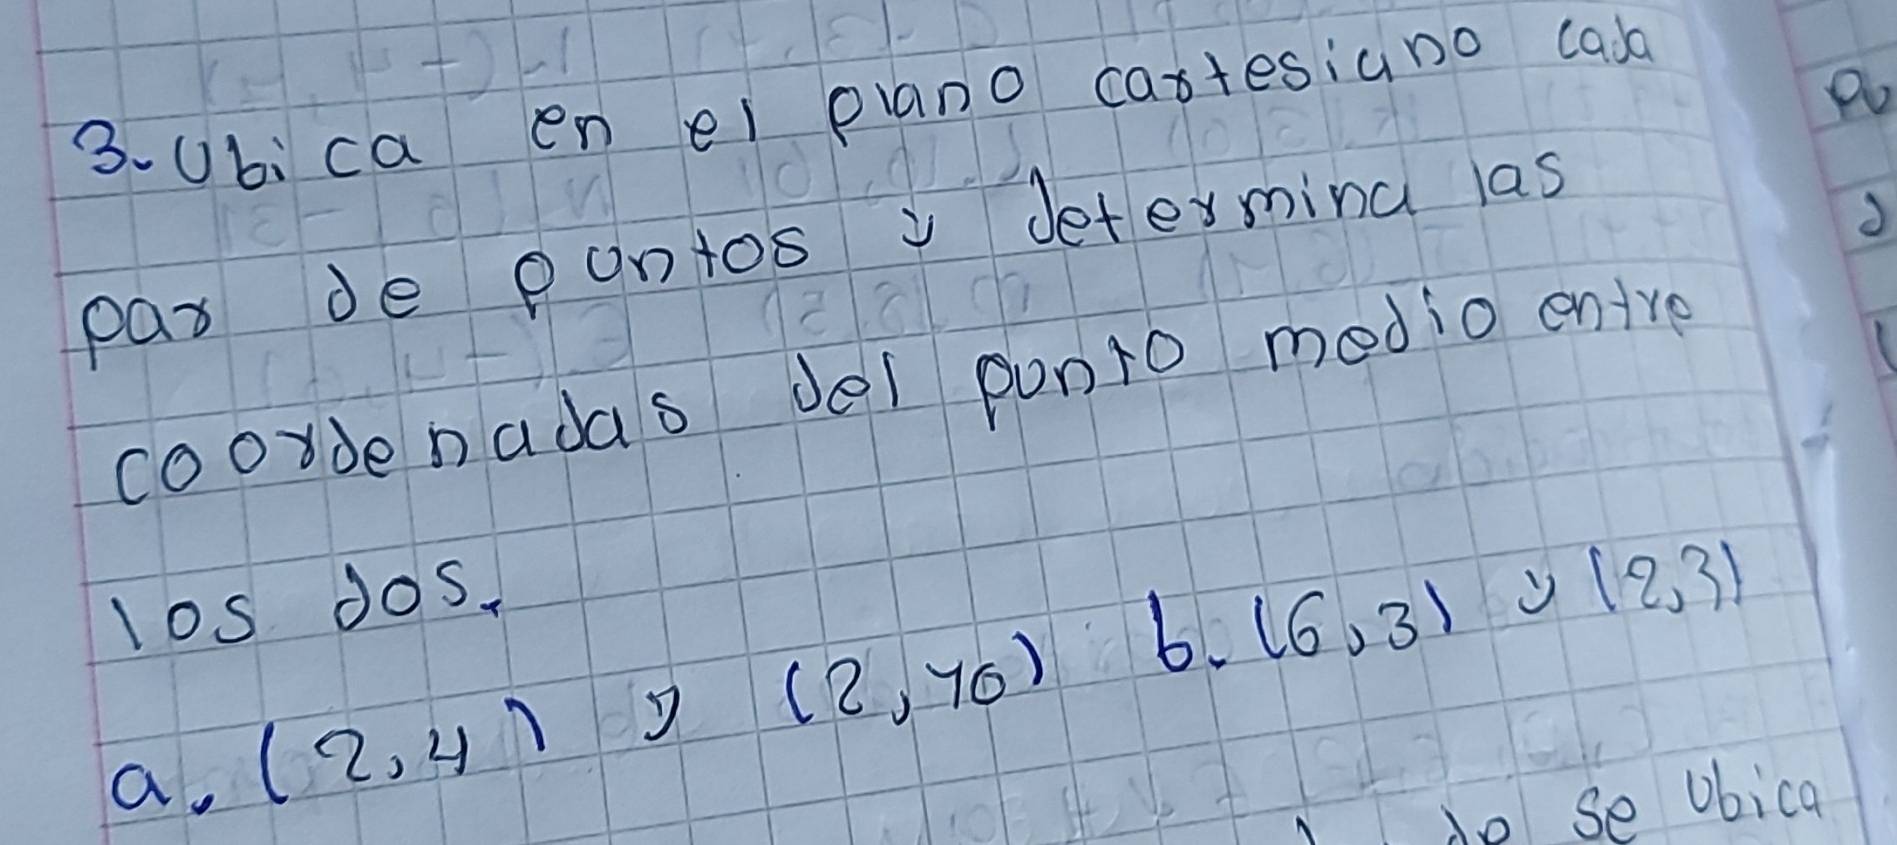 3. Ubica en el plano cartesiano cada
par de puntos y determina las
coordenadas del punto medio entre
los dos.
a. (2,4) y (2,10) b. (6,3) y (2,3)
se ubica